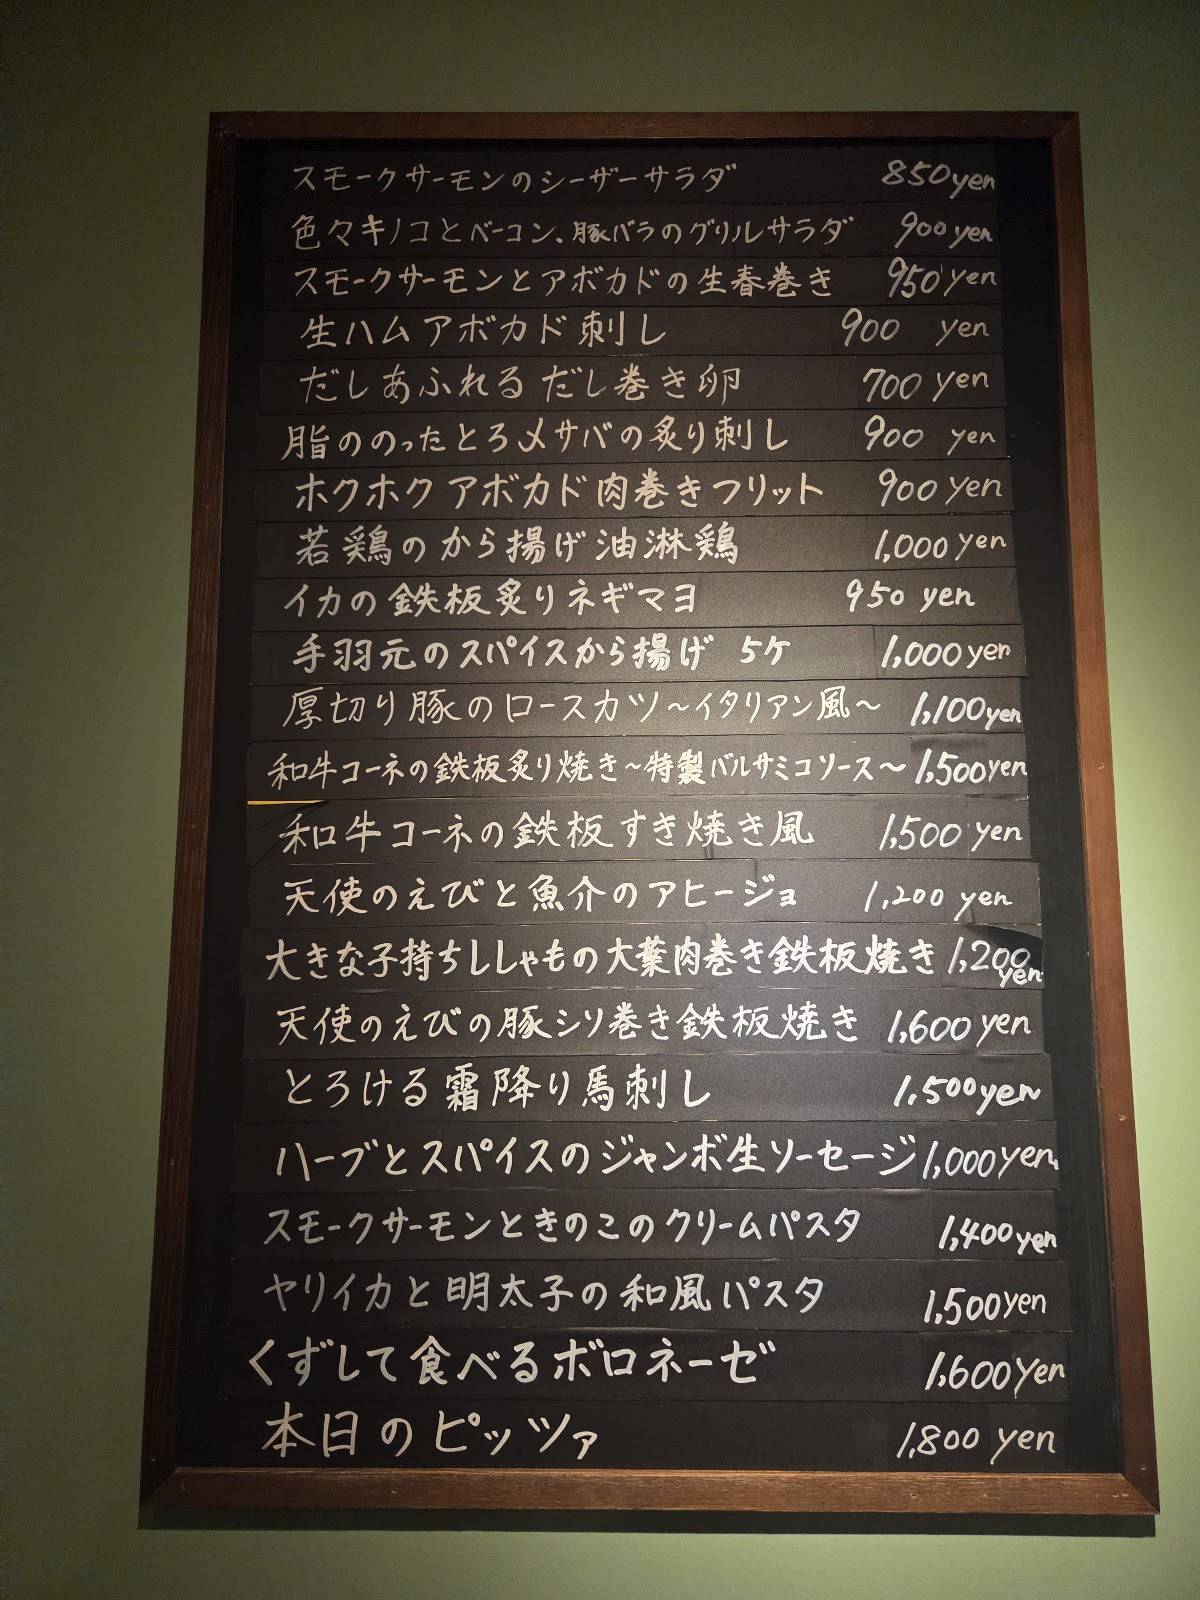 スモークサーモンのシーザーサラダ 850yen
色々キノコとベーコン、豚バラのグリルサラダ 900yen
スモークサーモンとアボカドの生春巻き 950yen
生ハムアボカド刺し 900 yen
だしあふれるだし巻き卵 700 yen
脂ののったとろメサバの炙り刺し 900 yen
ホクホクアボカド肉巻きフリット 900 yen
若鶏のから揚げ油淋鶏 1,000 yen
イカの鉄板炙りネギマヨ 950 yen
手羽元のスパイスから揚げ 5ケ 1,000 yen
厚切り豚のロースカツ～イタリアン風～ 1,100yen
和牛コーネの鉄板炙り焼き～特製バルサミコソース～ 1,500yen
和牛コーネの鉄板すき焼き風 1,500 yen
天使のえびと魚介のアヒージョ 1,200 yen
大きな子持ちししゃもの大葉肉巻き鉄板焼き 1,200 yen
天使のえびの豚シソ巻き鉄板焼き 1,600 yen
とろける霜降り馬刺し 1,500yen
ハーブとスパイスのジャンボ生ソーセージ 1,000yen
スモークサーモンときのこのクリームパスタ 1,400yen
ヤリイカと明太子の和風パスタ 1,500yen
くずして食べるボロネーゼ 1,600yen
本日のピッツァ 1,800 yen